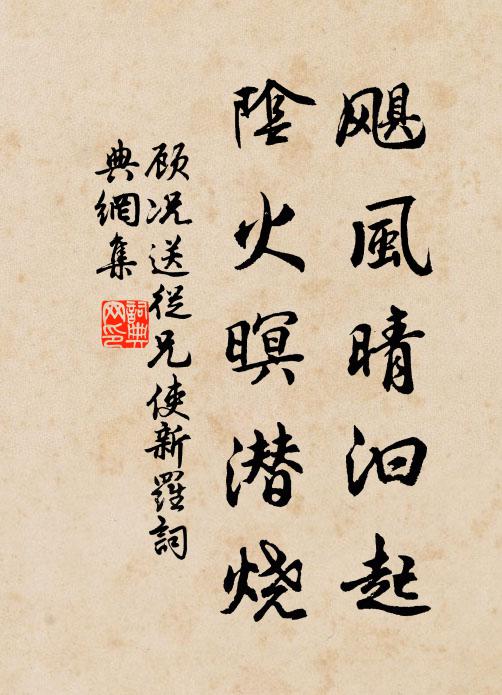 飓風晴汩起
陰火暝潜烧
顾况送從兄使新羅詞
典網集
詞典网印